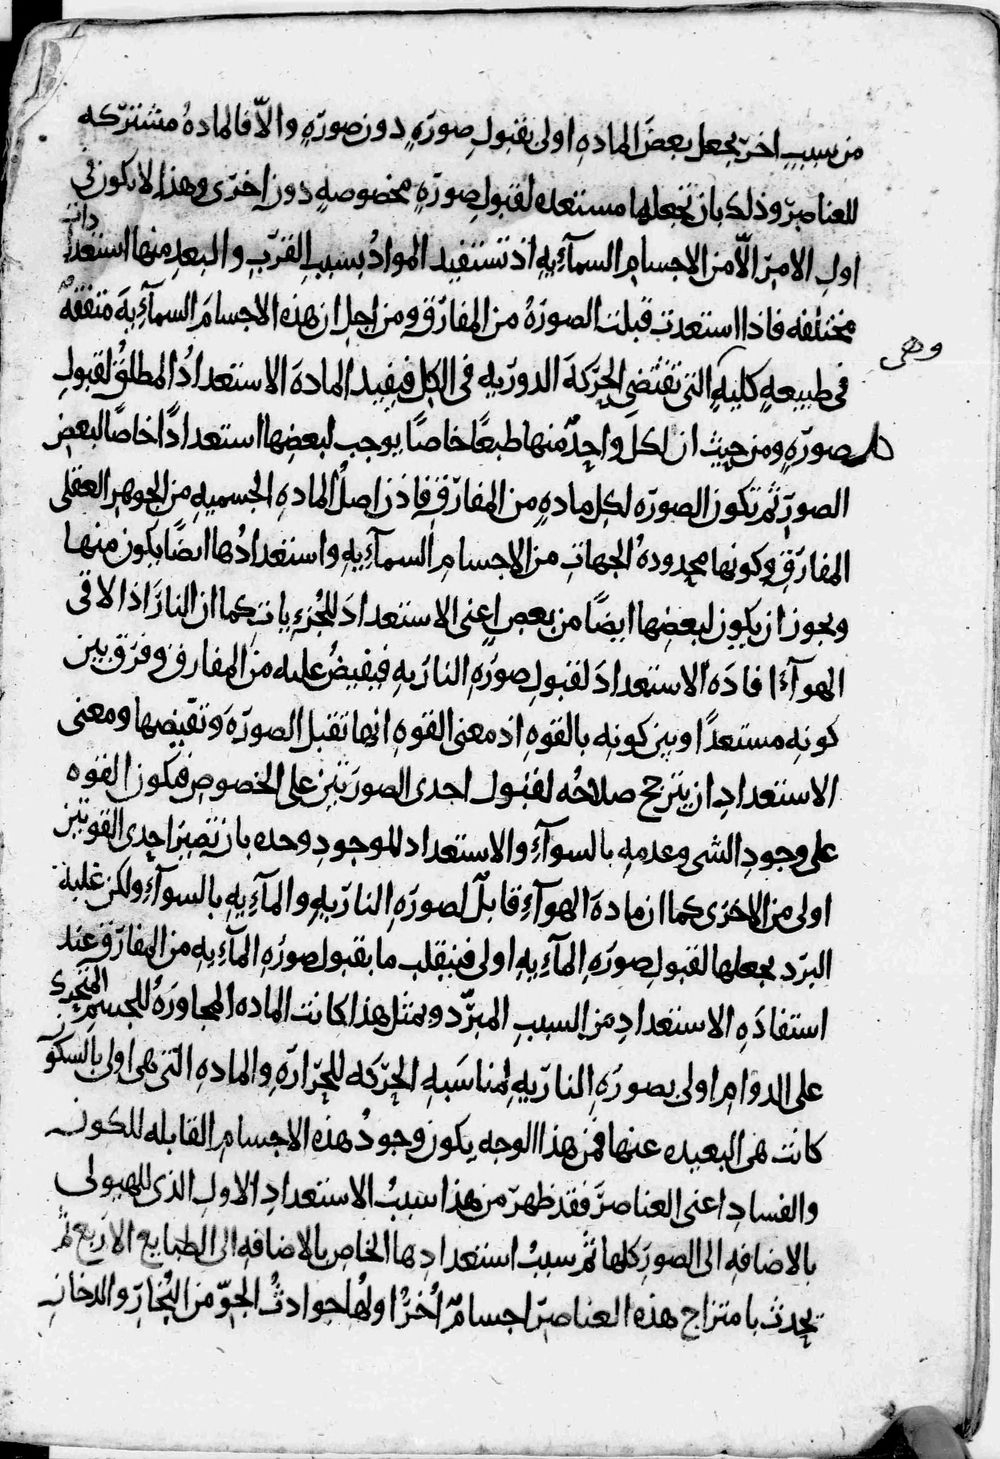 من سبب اخر يجعل بعض الماده اولى بقبول صورة دون صورة والّا فالمادة مشتركه
للعناصر وذلك بان تجعلها مستعده لقبول صورة مخصوصة دون اخرى وهذا لا يكون في
اول الامر الّا من الاجسام السمآئيه اذ تستفيد المواد بسبب القرب والبعد منها استعدادات
مختلفه فاذا استعدت قبلت الصورة من المفارق ومن اجل ان هذه الاجسام السمآئية متفقة
وهى
فى طبيعة كلية التى تقتضى الحركة الدوريه فى الكل فيفيد المادة الاستعداد المطلق لقبول
كل صورة ومن حيث ان لكل واحد منها طبعًا خاصًا يوجب لبعضها استعدادًا خاصًا لبعض
الصور ثم تكون الصوره لكل مادة من المفارق فاذن اصل الماده الجسميه من الجوهر العقلى
المفارق وكونها محدودة الجهات من الاجسام السمآئيه واستعدادها ايضًا يكون منها
ويجوز ان يكون لبعضها ايضًا من بعض اعنى الاستعداد للجزءيات كما ان النار اذا لاقى
الهوآء افاده الاستعداد لقبول صوره الناريه فيفيض عليه من المفارق وفرق بين
كونه مستعدًا وبين كونه بالقوه اذ معنى القوه انها تقبل الصوره ونقيضها ومعنى
الاستعداد ان يترجح صلاحه لقبول احدى الصورتين على الخصوص فيكون القوه
على وجود الشى وعدمه بالسوآء والاستعداد للموجود وحده بان تصير احدى القوتين
اولى من الاخرى كما ان مادة الهوآء قابل لصورة الناريه والمآئيه بالسوآء ولكن غلبة
البرد يجعلها لقبول صورة المآئيه اولى فينقلب ما بقبول صورة المآئيه من المفارق عند
استفاده الاستعداد من السبب المبرّد وبمثل هذا كانت الماده المجاورة للجسم المتحرك
على الدوام اولى بصوره الناريه لمناسبه الحركه للحراره والماده التى هى اولى بالسكون
كانت هى البعيده عنها فمن هذا الوجه يكون وجود هذه الاجسام القابله للكون
والفساد اعنى العناصر فقد ظهر من هذا سبب الاستعداد الاول الذى للهيولى
بالاضافه الى الصور كلها ثم سبب استعدادها الخاص بالاضافه الى الطبايع الاربع ثم
يحدث بامتزاج هذه العناصر اجسام اُخر اولها حوادث الجوّ من البخار والدخان